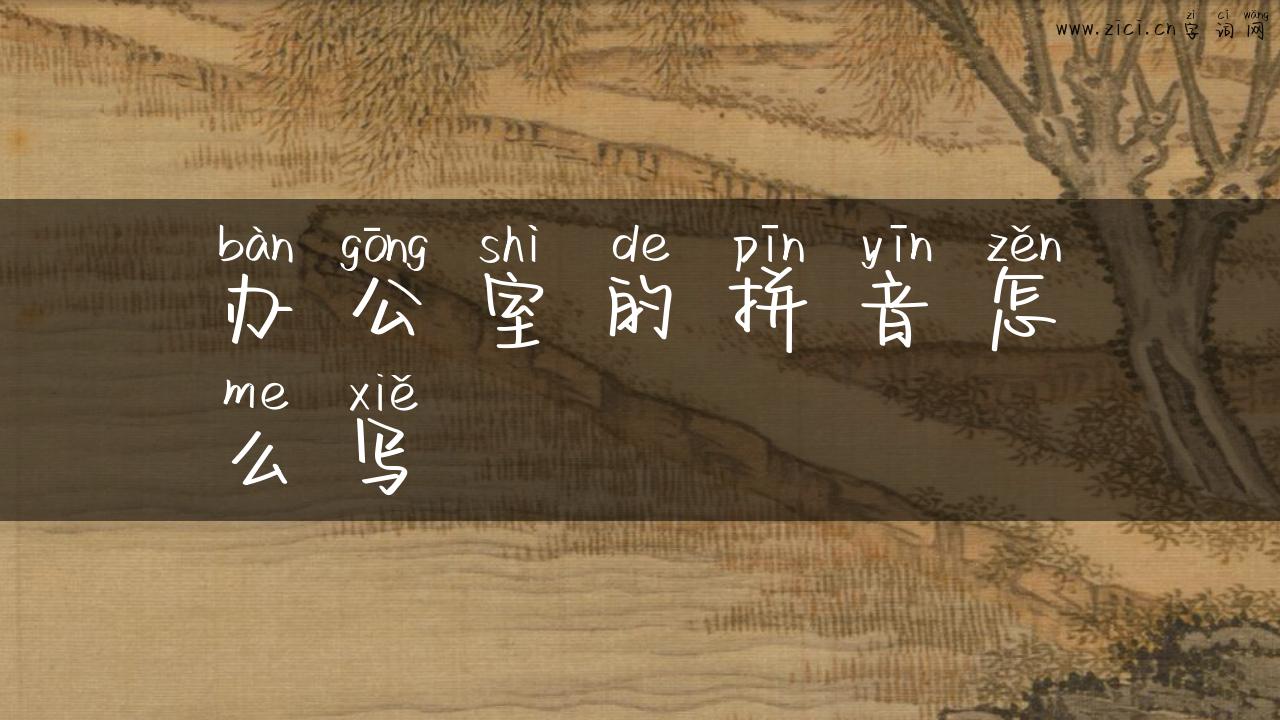 zì cí wǎng
www.zici.cn 字 词 网
bàn gōng shì de pīn yīn zěn
办 公 室 的 拼 音 怎
me xiě
么 写